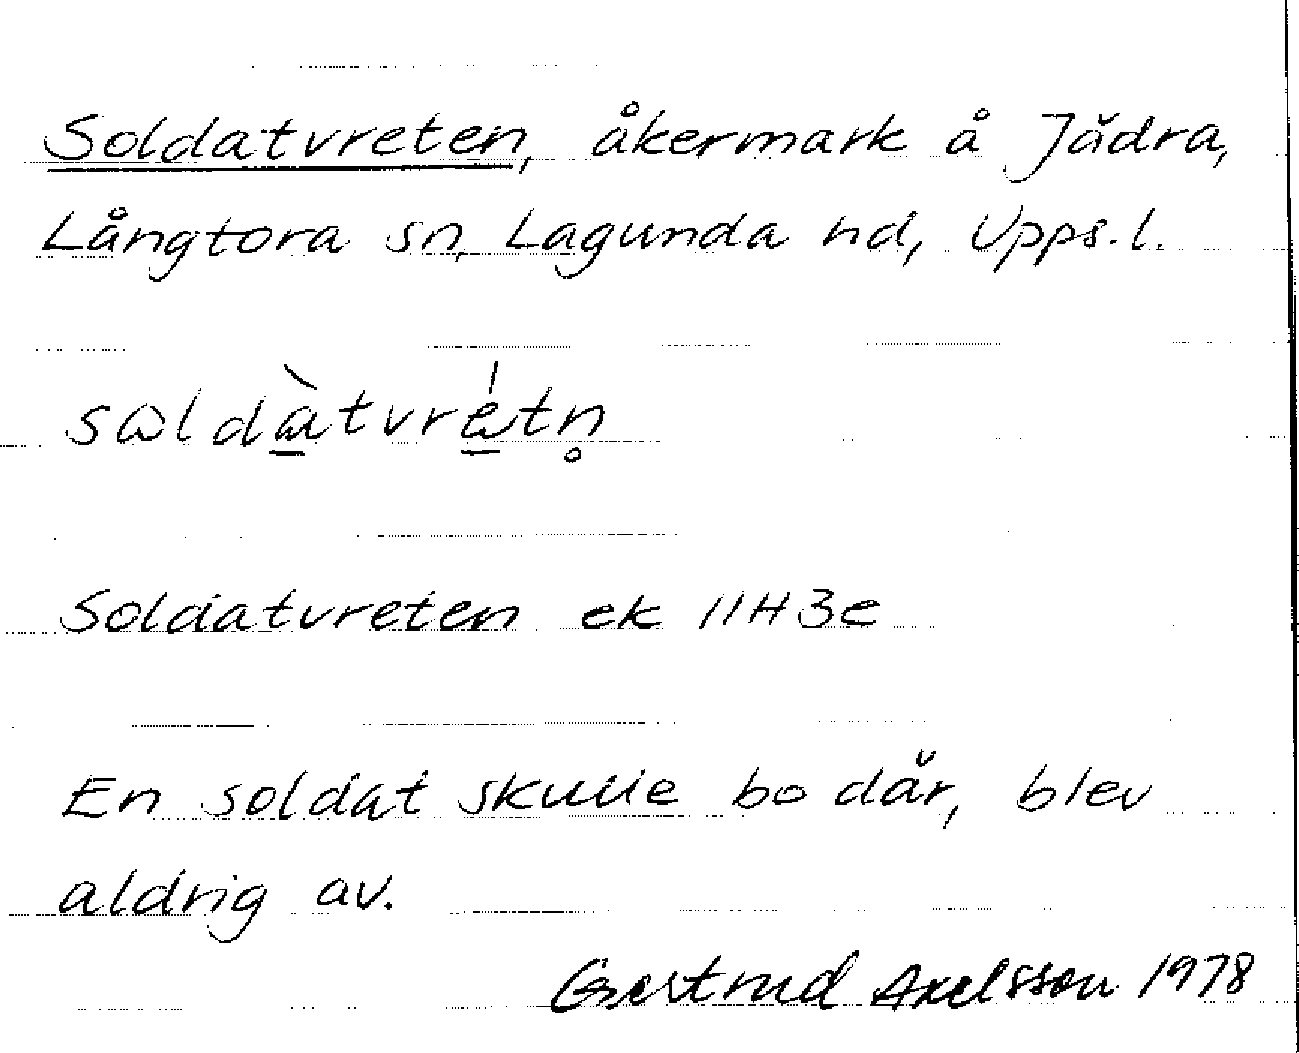 Soldatvreten, åkermark å Jädra,
Långtora sn, Lagunda hd, Upps.l.
Soldatvreten ek 11H3e
En soldat skulle bo där, blev
aldrig av.
Gertrud Axelsson 1978